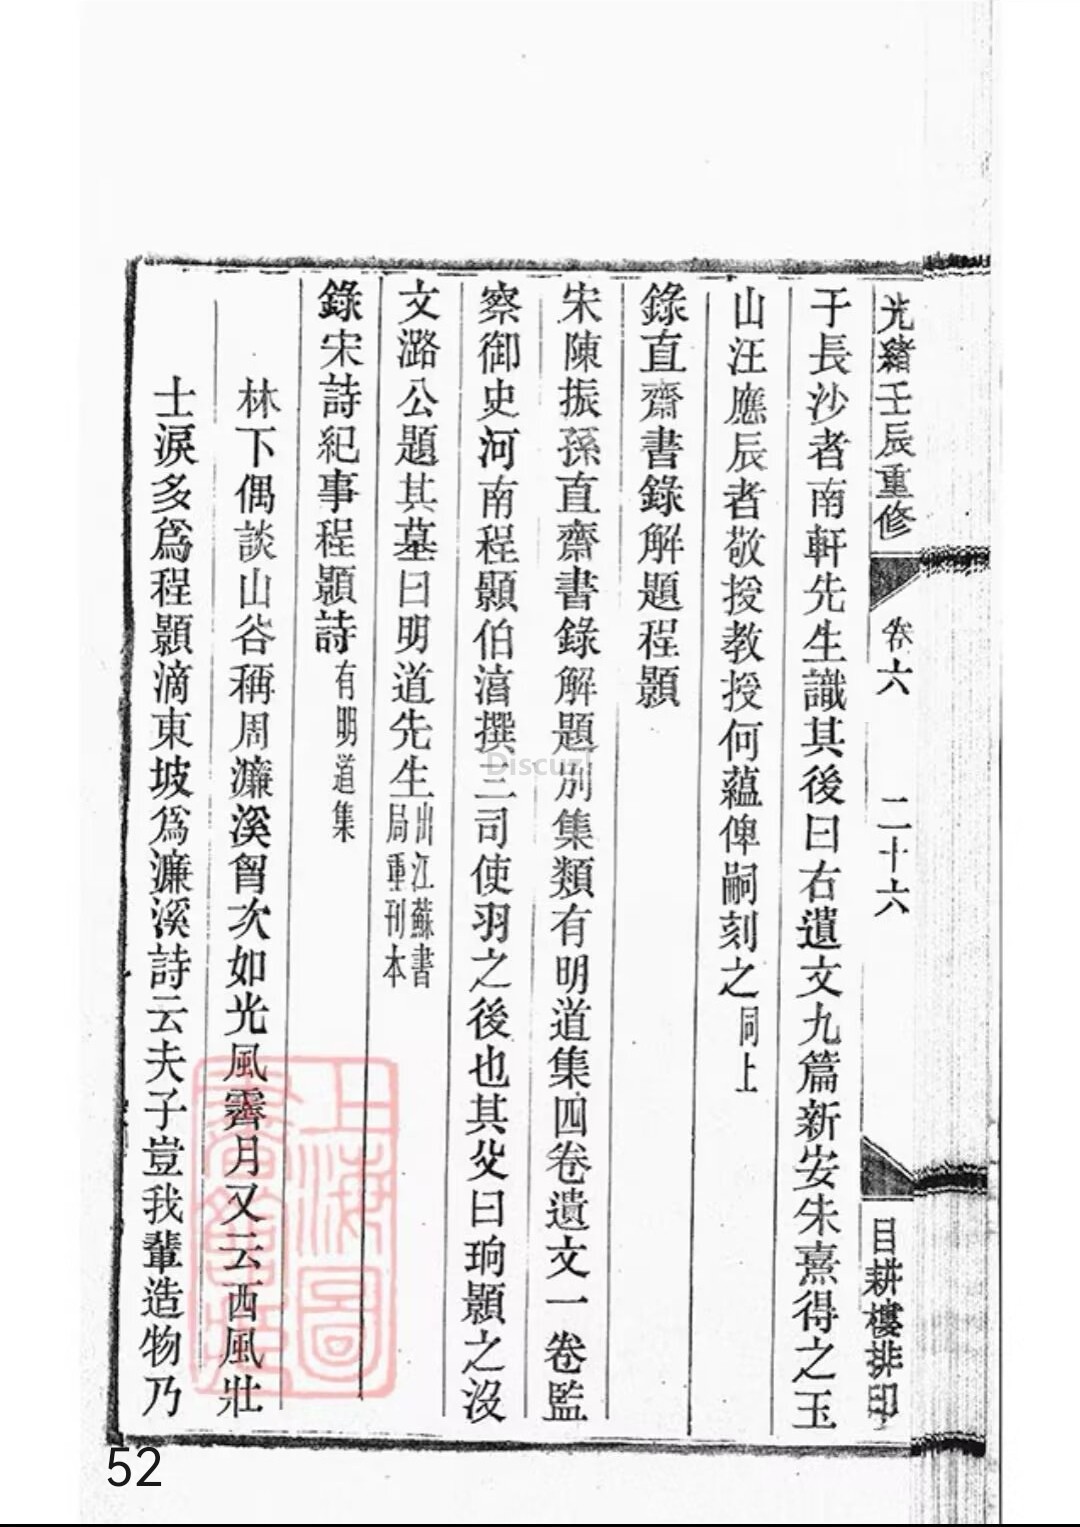 光緒壬辰重修 卷六 二十六 目耕樓排印
于長沙者南軒先生識其後曰右遺文九篇新安朱熹得之玉
山汪應辰者敬授教授何蘊俾嗣刻之同上
錄直齋書錄解題程顥
宋陳振孫直齋書錄解題別集類有明道集四卷遺文一卷監
察御史河南程顥伯淳撰三司使羽之後也其父曰珦顥之沒
文潞公題其墓曰明道先生出江蘇書局重刊本
錄宋詩紀事程顥詩有明道集
林下偶談山谷稱周濂溪胷次如光風霽月又云西風壯
士淚多爲程顥滴東坡爲濂溪詩云夫子豈我輩造物乃
上海圖書館藏
Discuz!
52